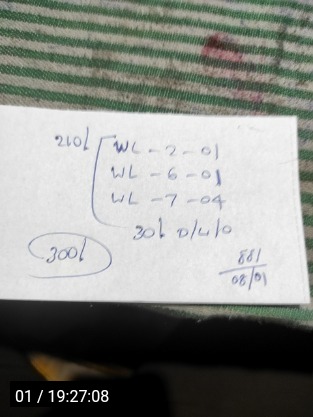 210/ WL - 2 - 01
WL - 6 - 01
WL - 7 - 04
30/ 0/4/0
300/
881
08/01
01 / 19:27:08